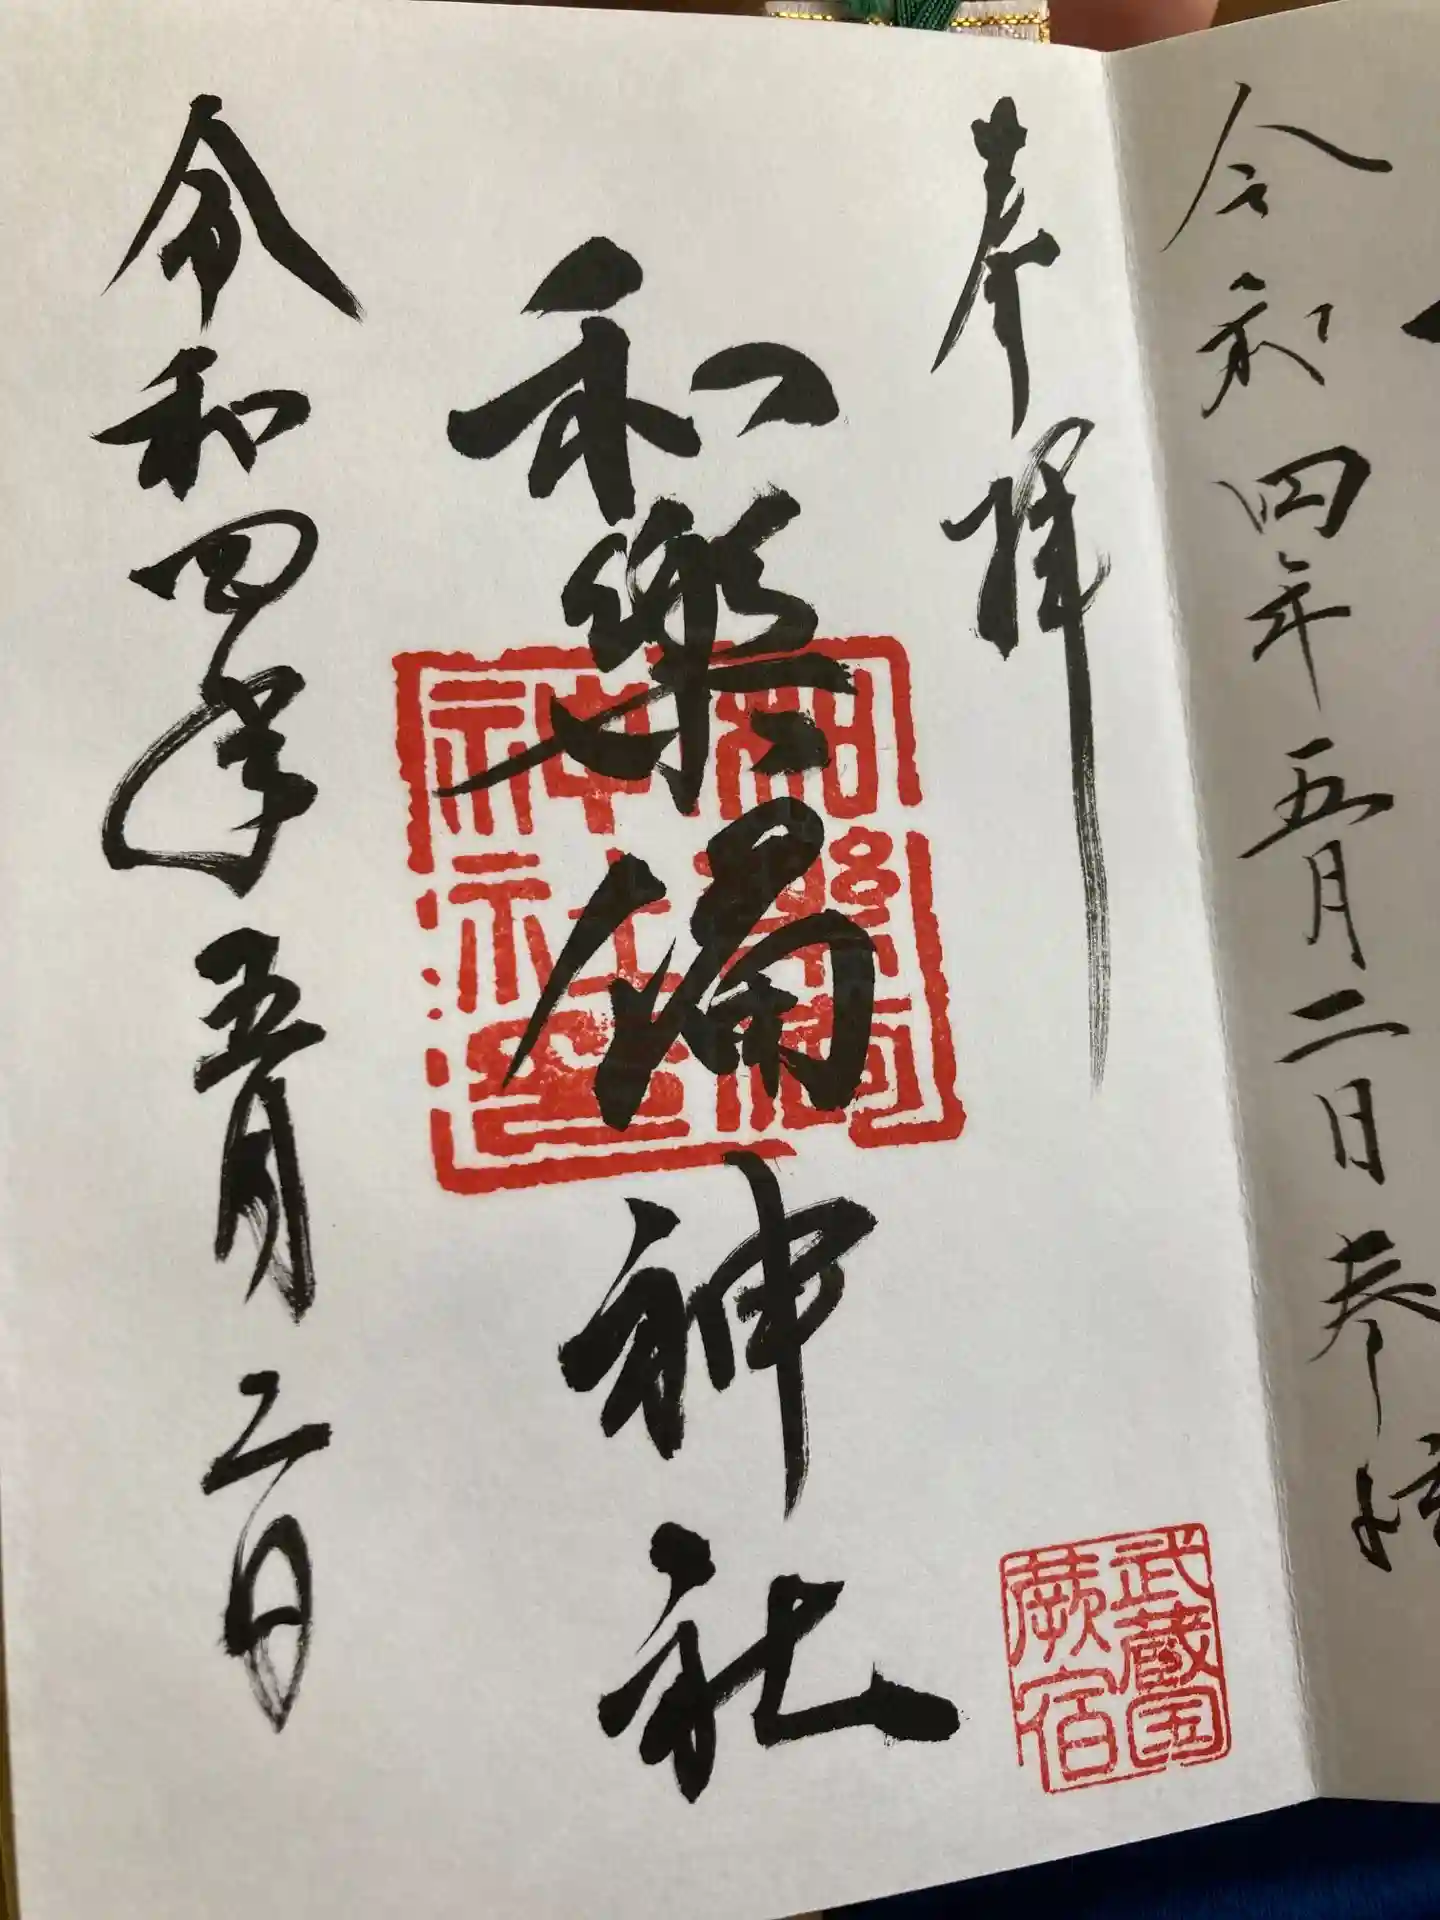 令和四年五月二日参
奉拝
武蔵国
蕨宿
和樂備神社
和樂備
神社印
令和四年五月二日